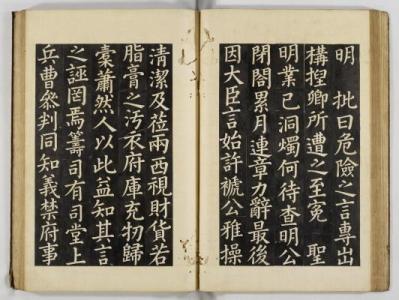 明　批曰危險之言專出
構捏卿所遭之至寃　聖
明業已洞燭何待查明公
閉閤累月連章力辭最後
因大臣言始許褫公雅操
清潔及莅兩西視財貨若
脂膏之汚衣府庫充牣歸
槖蕭然人以此益知其言
之誣罔焉籌司有司堂上
兵曹叅判同知義禁府事